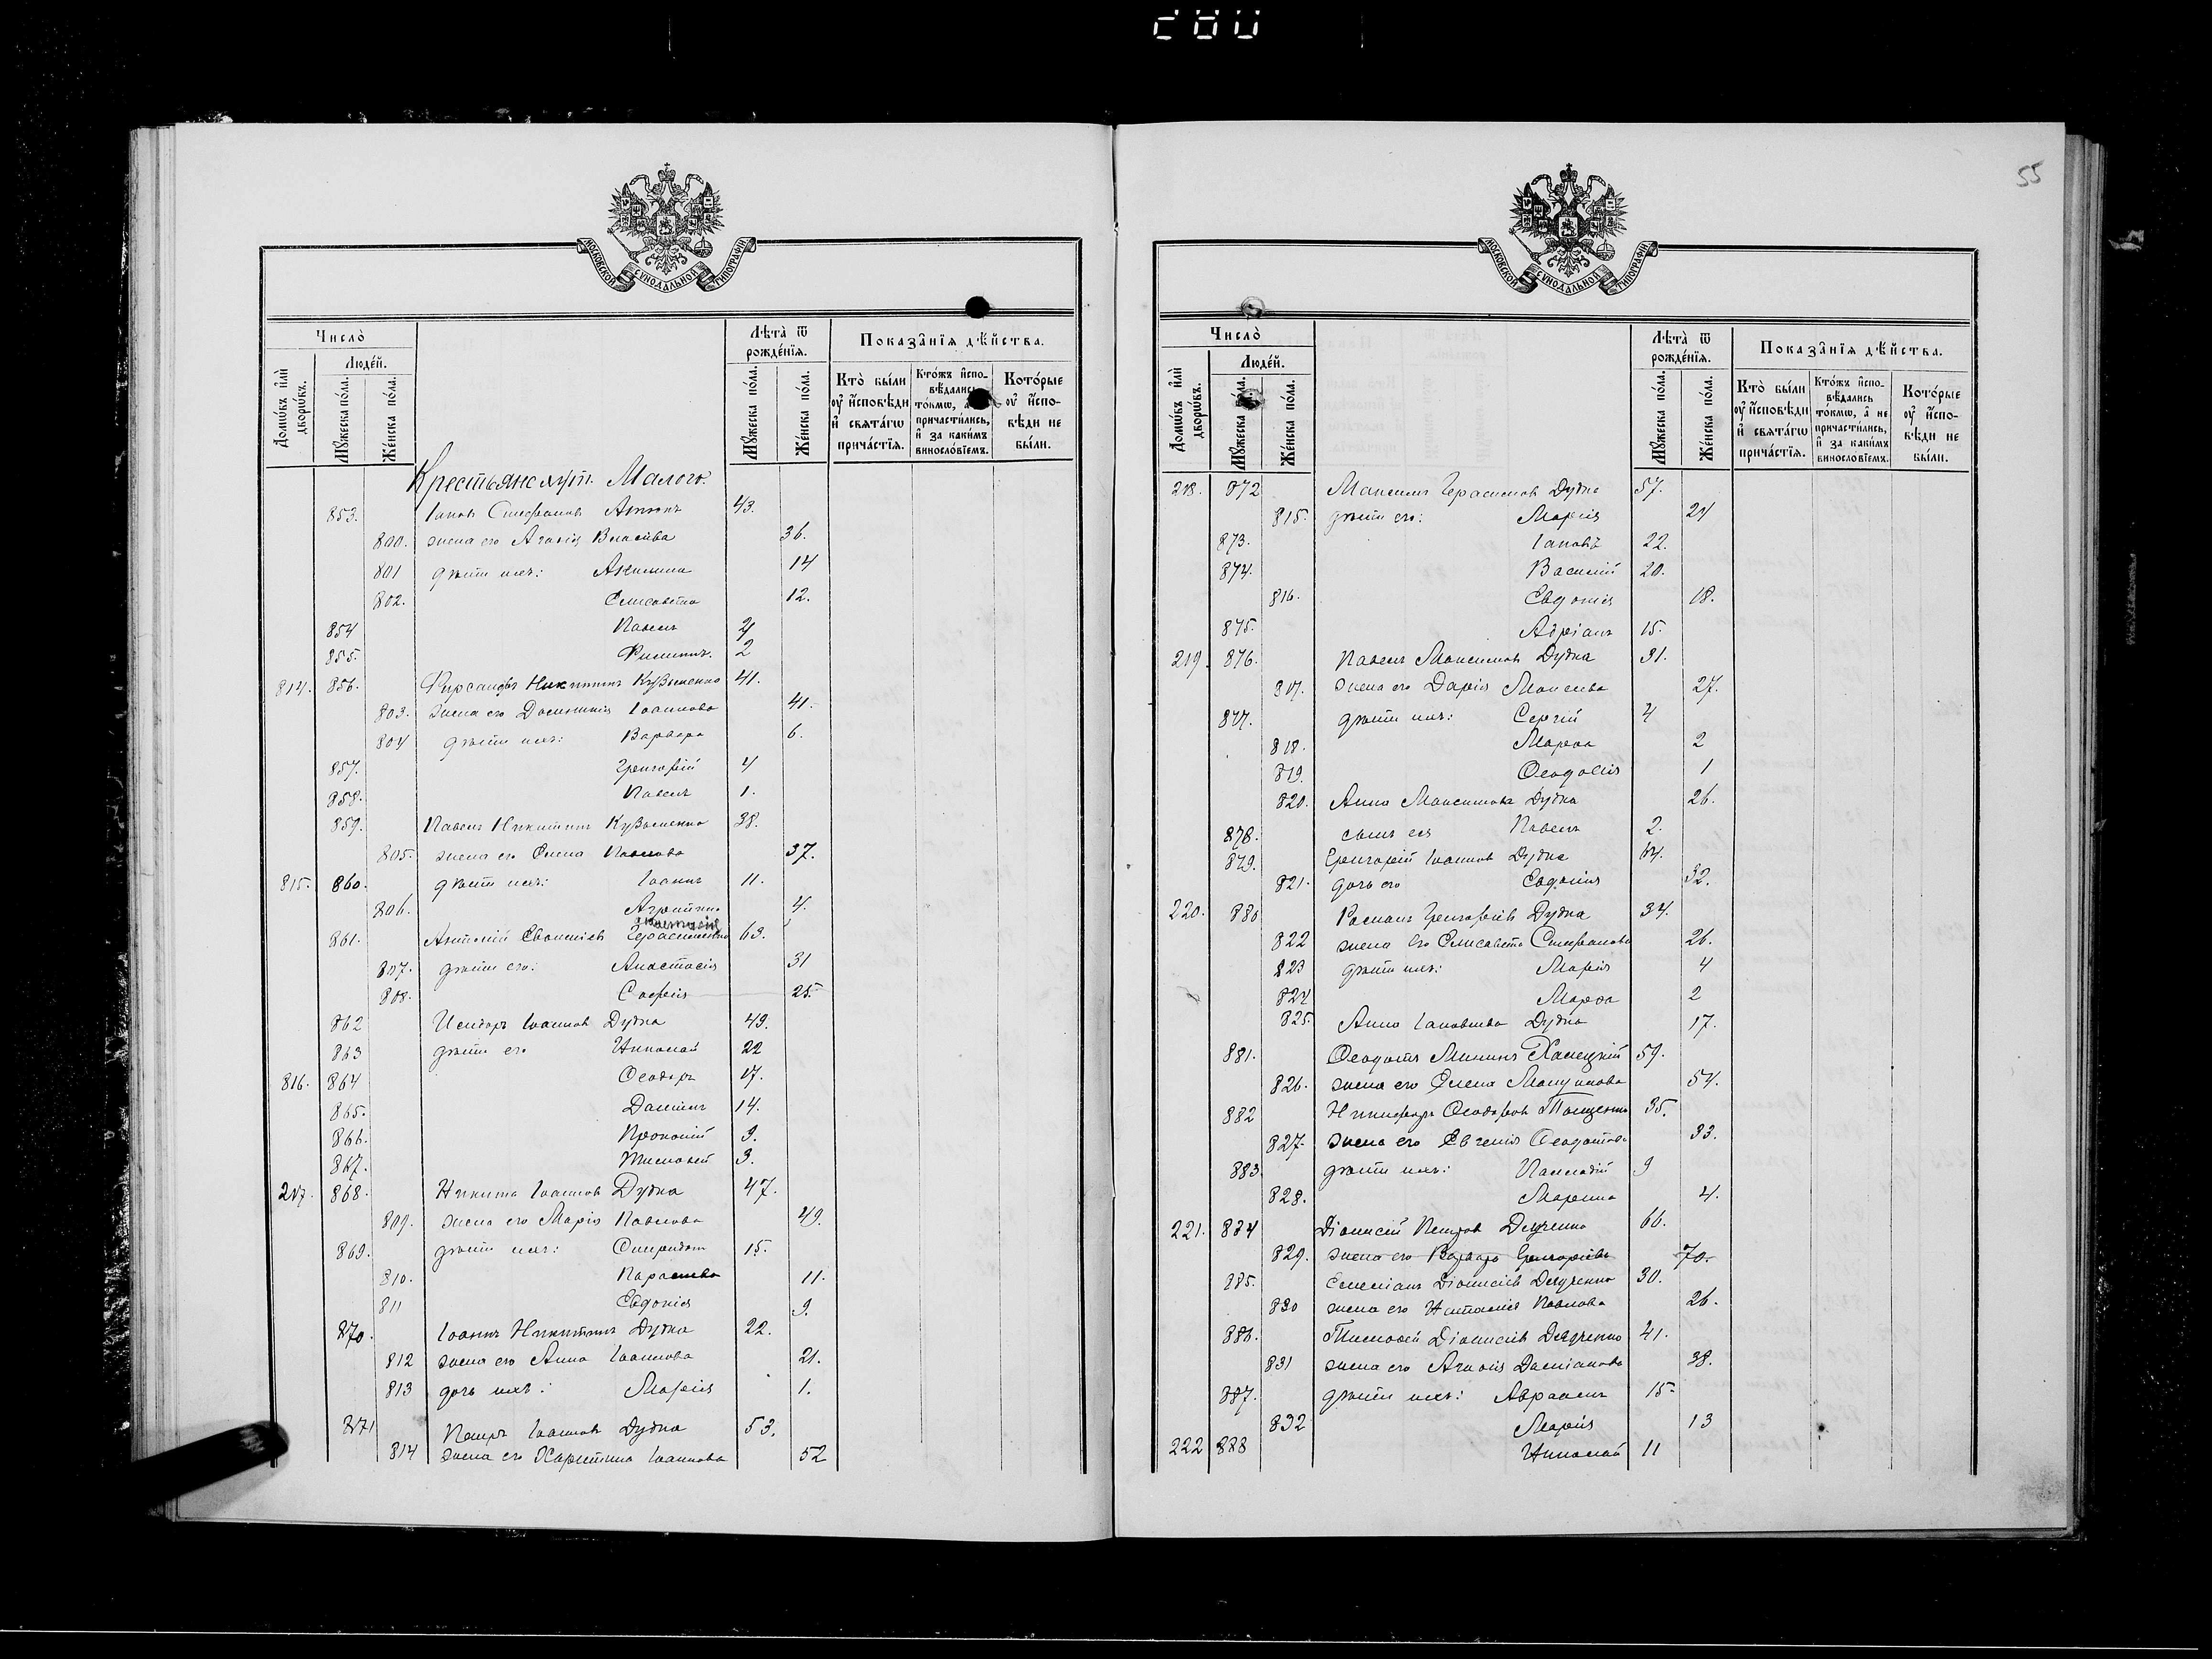 55
МОСКОВСКОЙ СУНОДАЛЬНОЙ ТИПОГРАФІИ
Число̀
Людéй.
Домѡ́въ и҆лѝ дворѡ́въ.
Мꙋ́жеска пóла.
Жéнска пóла.
Лѣта̀ ѿ рождéнїѧ.
Мꙋ́жеска пóла.
Жéнска пóла.
Показа̂нїѧ дѣ́йства.
Кто̀ бы́ли оу҆ и҆́сповѣди и҆ свѧта́гѡ прича́стїѧ.
Кто́жъ и҆спо-вѣ́дались то́кмѡ, а҆ не причасти́лись, и҆ за каки́мъ винослóвїемъ.
Котóрые оу҆ и҆́спо-вѣди не бы́ли.
Крестьяне хут. Малого.
853. Іаковъ Стефановъ 43.
800. жена его Агафія Власіева 36.
801 дѣти ихъ: Акилина 14
802. Елисавета 12.
854 Павелъ 4
855. Филиппъ. 2
814. 856. Никитинъ Кузьменко 41.
803. жена его Іоаннова 41.
804 дѣти ихъ: Варвара 6.
857. Григорій 4
858. Павелъ 1.
859. Павелъ Никитинъ Кузьменко 38.
805. жена его Елена Павлова 37.
815. 860. дѣти ихъ: Іоаннъ 11.
806. 4.
861. Антоній 63.
807. дѣти его: Анастасія 31
808. Софія 25.
862 Исидоръ Іоанновъ Дудка 49.
863 дѣти его Николай 22
816. 864 Ѳеодоръ 17.
865. Даніилъ 14.
866. Прокопій 9.
867. Тимоѳей 3.
217. 868. Никита Іоанновъ Дудка 47.
809. жена его Марія Павлова 49.
869. дѣти ихъ: Спиридонъ 15.
810. Параскева 11.
811 Евдокія 9.
870. Іоаннъ Никитинъ Дудка 22.
812 жена его Анна Іоаннова 21.
813 дочь ихъ: Марія 1.
871 Петръ Іоанновъ Дудка 53.
814 жена его Харитина Іоаннова 52
МОСКОВСКОЙ СУНОДАЛЬНОЙ ТИПОГРАФІИ
Число̀
Людéй.
Домѡ́въ и҆лѝ дворѡ́въ.
Мꙋ́жеска пóла.
Жéнска пóла.
Лѣта̀ ѿ рождéнїѧ.
Мꙋ́жеска пóла.
Жéнска пóла.
Показа̂нїѧ дѣ́йства.
Кто̀ бы́ли оу҆ и҆́сповѣди и҆ свѧта́гѡ прича́стїѧ.
Кто́жъ и҆спо-вѣ́дались то́кмѡ, а҆ не причасти́лись, и҆ за каки́мъ винослóвїемъ.
Котóрые оу҆ и҆́спо-вѣди не бы́ли.
218. 872 Максимъ Герасимовъ Дудка 57.
815. дѣти его: Марія 24
873. Іаковъ 22.
874. Василій 20.
816. Евдокія 18.
875. Адріанъ 15.
219. 876. Павелъ Максимовъ Дудка 31.
817. жена его Дарія 27.
877. дѣти ихъ: Сергій 4
818. Марѳа 2
819. Ѳеодосія 1
820. Анна Максимова Дудка 26.
878. сынъ ея Павелъ 2.
879. Григорій Іоанновъ Дудка 64.
821. дочь его Евдокія 32.
220. 880 Романъ Григоріевъ Дудка 34.
822 жена его Елисавета Стефанова 26.
823 дѣти ихъ: Марія 4
824 Марѳа 2
825. Анна Іаковлева Дудка 17.
881. Ѳеодотъ 59.
826. жена его Елена 54.
882 Никифоръ Ѳеодоровъ 35.
827. жена его Евгенія Ѳеодотова 33.
883 дѣти ихъ: Палладій 9
828. Марина 4.
221. 884 Діонисій Петровъ 66.
829. жена его Варвара Григоріева 70.
885. Діонисіевъ 30.
830 жена его Наталія Павлова 26.
886. Тимоѳей Діонисіевъ 41.
831 жена его Агафія Даміанова 38.
887. дѣти ихъ: Авраамъ 15
832 Марія 13
222 888 Николай 11